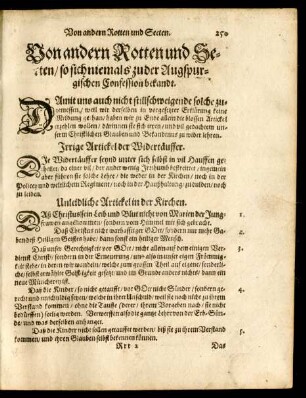 Von andern Rotten und Secten. 250
Von andern Rotten und Se-
cten / so sich niemals zu der Augspur-
gischen Confession bekandt.
DAmit uns auch nicht stillschweigende solche zu-
gemessen / weil wir derselben in vorgesetzter Erklärung keine
Meldung gethan / haben wir zu Ende allein die blossen Artickel
erzehlen wollen / darinnen sie sich irren / und viel gedachtem un-
serm Christlichen Glauben und Bekandtnus zu wider lehren.
Irrige Artickel der Widertäuffer.
DIe Widertäuffer seynd unter sich selbst in vil Hauffen ge-
theilet / da einer vil / der ander wenig Irrthumb bestreitet / ingemein
aber führen sie solche Lehre / die weder in der Kirchen / noch in der
Policey und weltlichem Regiment / noch in der Haußhaltung / zu dulden / noch
zu leiden.
Unleidliche Artickel in der Kirchen.
DAß Christus sein Leib und Blut nicht von Marien der Jung- 1.
frawen angenommen / sondern vom Himmel mit sich gebracht.
Daß Christus nicht warhafftiger GOtt / sondern nur mehr Ga- 2.
ben deß Heiligen Geistes habe / dann sonst ein heiliger Mensch.
Daß unsere Gerechtigkeit vor GOtt / nicht allein auf dem einigen Ver- 3.
dienst Christi / sondern in der Erneuerung / und also in unser eigen Frömmig-
keit stehe / in deren wir wandeln / welche zum grossen Theil auf eigene / sonderli-
che / selbst erwählte Geistligkeit gesetzt / und im Grunde anders nichts / dann ein
neue Müncherey ist.
Daß die Kinder / so nicht getaufft / vor GOtt nicht Sünder / sondern ge- 4.
recht und unschuldig seyen / welche in ihrer Unschuld / weil sie noch nicht zu ihrem
Verstand kommen / ohne die Tauffe (derer / ihrem Vorgeben nach / sie nicht
bedürffen) seelig werden. Verwerffen also die gantze Lehre von der Erb-Sün-
de / und was derselben anhanget.
Daß die Kinder nicht sollen getaufft werden / biß sie zu ihrem Verstand 5.
kommen / und ihren Glauben selbst bekennen können.
Rrr 2 Das